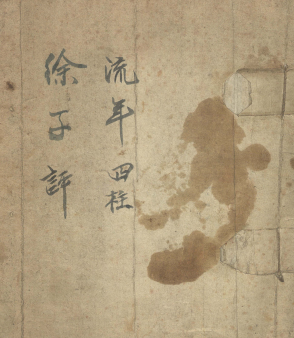 流年四柱
徐子評